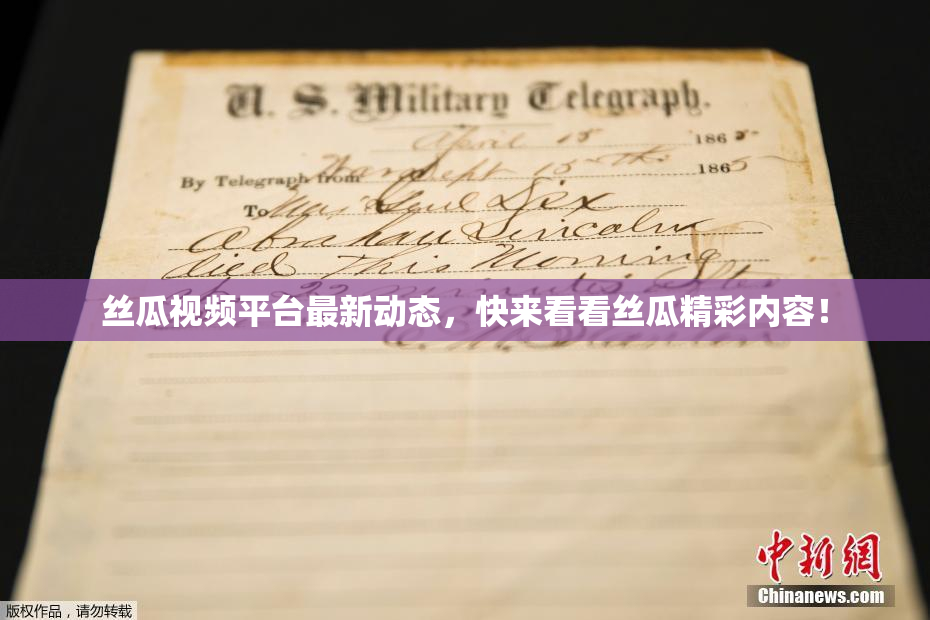 U. S. Military Telegraph.
April 15 1865
By Telegraph from War Dept 15th 1865
To Maj Genl Dix
Abraham Lincoln
died This Morning
22 minutes after
丝瓜视频平台最新动态，快来看看丝瓜精彩内容！
E. M. Stanton
中新网
Chinanews.com
版权作品，请勿转载